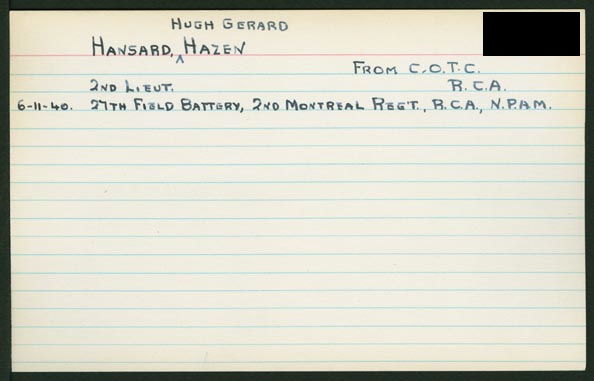 HUGH GERARD
HANSARD, ^ HAZEN
FROM C.O.T.C.
2ND LIEUT. R.C.A.
6-11-40. 27TH FIELD BATTERY, 2ND MONTREAL REGT., R.C.A., N.P.A.M.